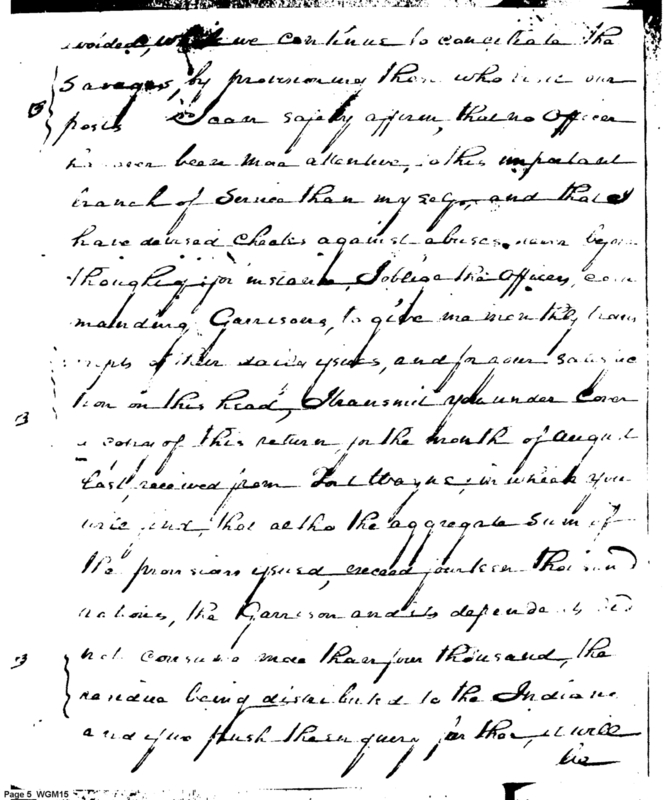 avoided, while we continue to conciliate the
Savages, by provisioning those who visit our
posts I can safely affirm, that no Officer
has ever been more attentive, to this important
branch of Service than myself, and that I
have devised checks against abuses never before
thought of, for instance, I oblige the Officers, com
manding Garrisons, to give me monthly trans
cripts of their daily issues, and for your satisfac
tion on this head, I transmit you under cover
a copy of this return, for the month of August
last, received from Fort Wayne, in which you
will find, that altho the aggregate Sum of
the provisions issued, exceed fourteen thousand
rations, the Garrison and its dependents did
not consume more than four thousand, the
residue being distributed to the Indians
and if we push the inquiry further, it will
be
Page 5 WGM15